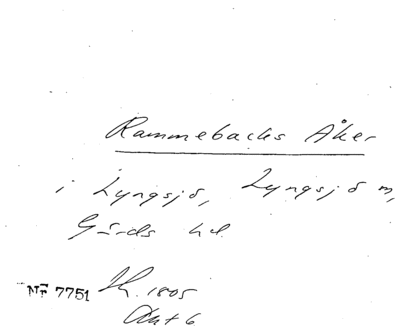 Rammebacks Åker
i Lyngsjö, Lyngsjö sn,
Gärds hd
NF 7751 Sk. 1805
Akt 6